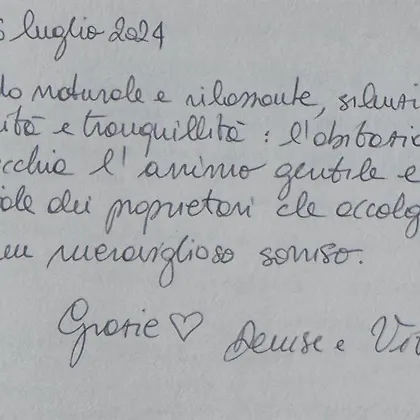 luglio 2024
naturale e rilassante,
e tranquillità : l'abitazio
cchia l'animo gentile e
dei proprietari che accolg
un meraviglioso sorriso.
Grazie ♡ Denise e